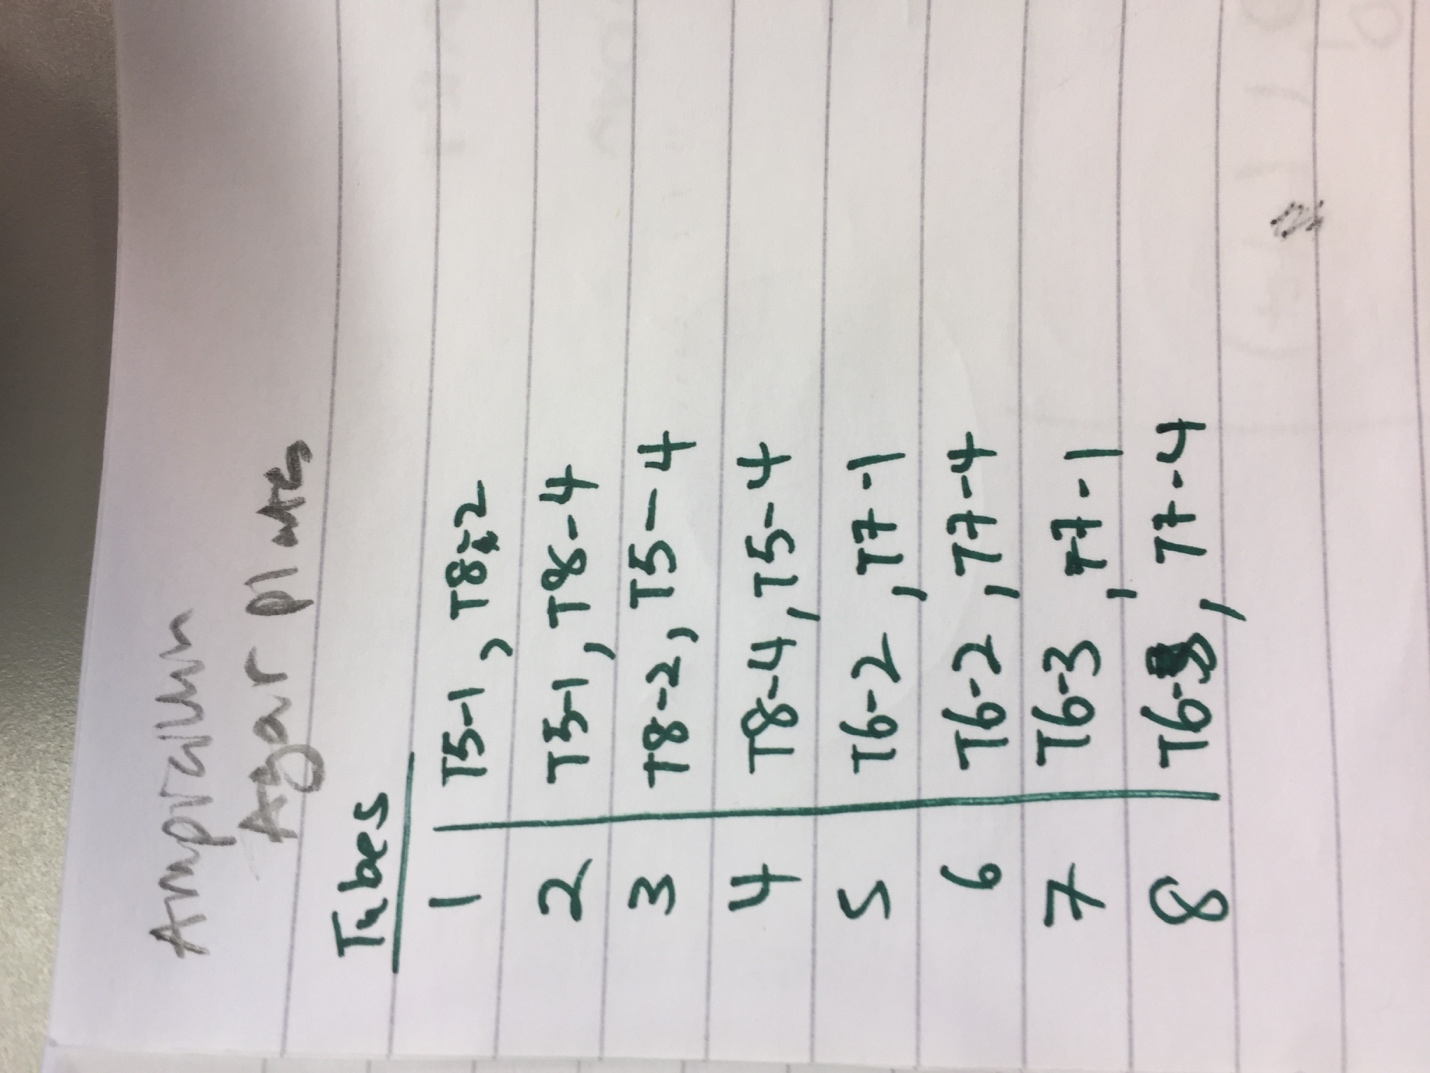 Agar plates
Tubes
1 T5-1, T8-2
2 T5-1, T8-4
3 T8-2, T5-4
4 T8-4, T5-4
5 T6-2, T7-1
6 T6-2, T7-4
7 T6-3, T7-1
8 T6-3, T7-4